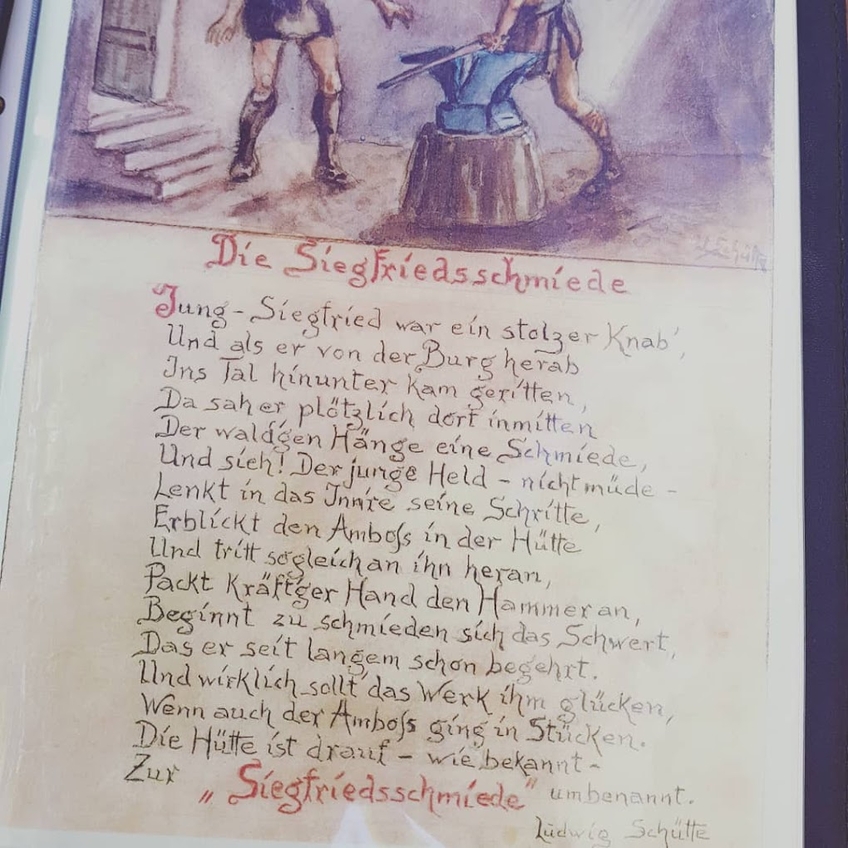 L. Schütte
Die Siegfriedsschmiede
Jung-Siegfried war ein stolzer Knab',
Und als er von der Burg herab
Ins Tal hinunter kam geritten,
Da sah er plötzlich dort inmitten
Der wald'gen Hänge eine Schmiede,
Und sieh! Der junge Held - nicht müde -
Lenkt in das Inn're seine Schritte,
Erblickt den Amboſs in der Hütte
Und tritt sogleich an ihn heran,
Packt kräft'ger Hand den Hammer an,
Beginnt zu schmieden sich das Schwert,
Das er seit langem schon begehrt.
Und wirklich sollt' das Werk ihm glücken,
Wenn auch der Amboſs ging in Stücken.
Die Hütte ist drauf - wie bekannt -
Zur „Siegfriedsschmiede" umbenannt.
Ludwig Schütte